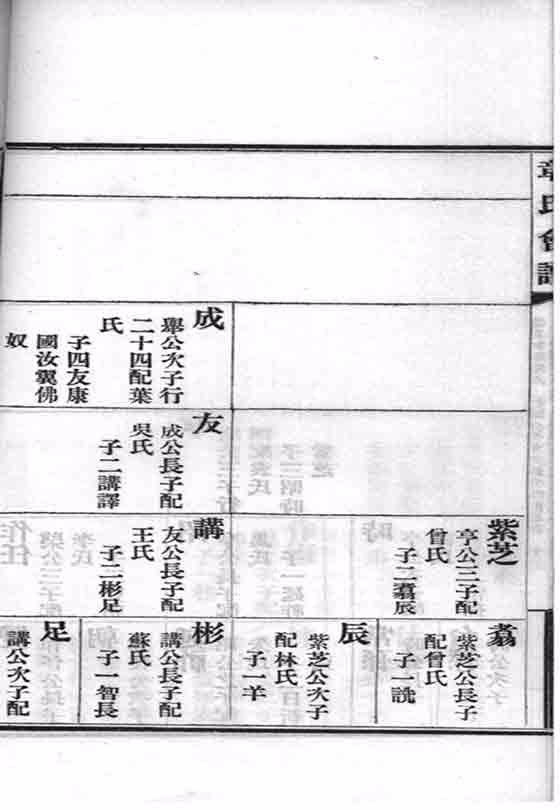 章氏會譜
成
舉公次子行
二十四配葉
氏
子四友康
國汝翼佛
奴
友
成公長子配
吳氏
子二講譯
紫芝
亨公三子配
曾氏
子二翥辰
講
友公長子配
王氏
子二彬足
翥
紫芝公長子
配曾氏
子一詵
辰
紫芝公次子
配林氏
子一羊
彬
講公長子配
蘇氏
子一智長
足
講公次子配